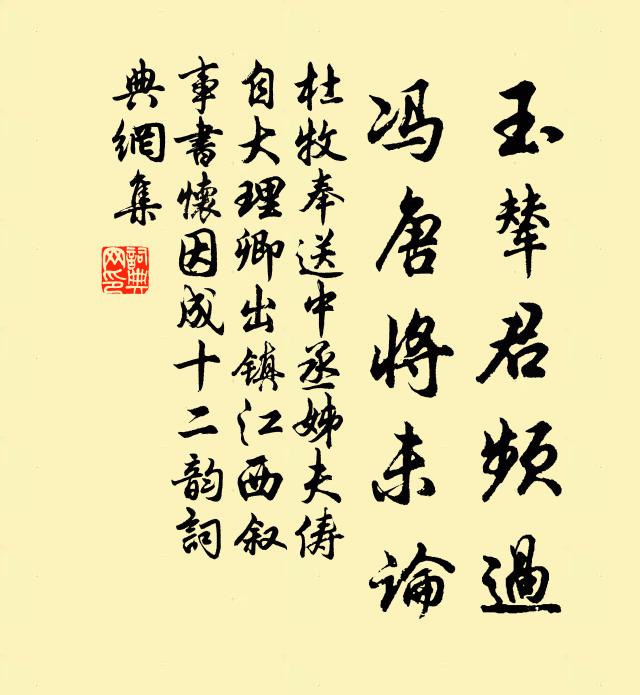 玉辇君频过
冯唐将未论
杜牧奉送中丞姊夫俦
自大理卿出镇江西叙
事書懷因成十二韵詞
典網集
詞典
网印